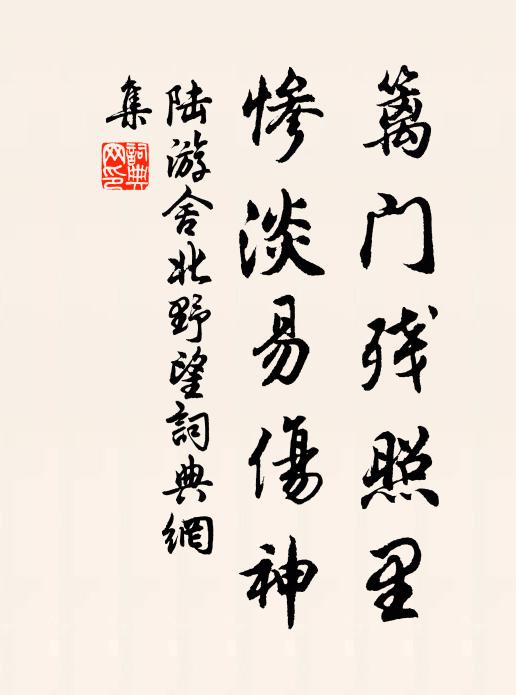 篱门残照里
惨淡易傷神
陆游舍北野望詞典網
集
詞典
网印